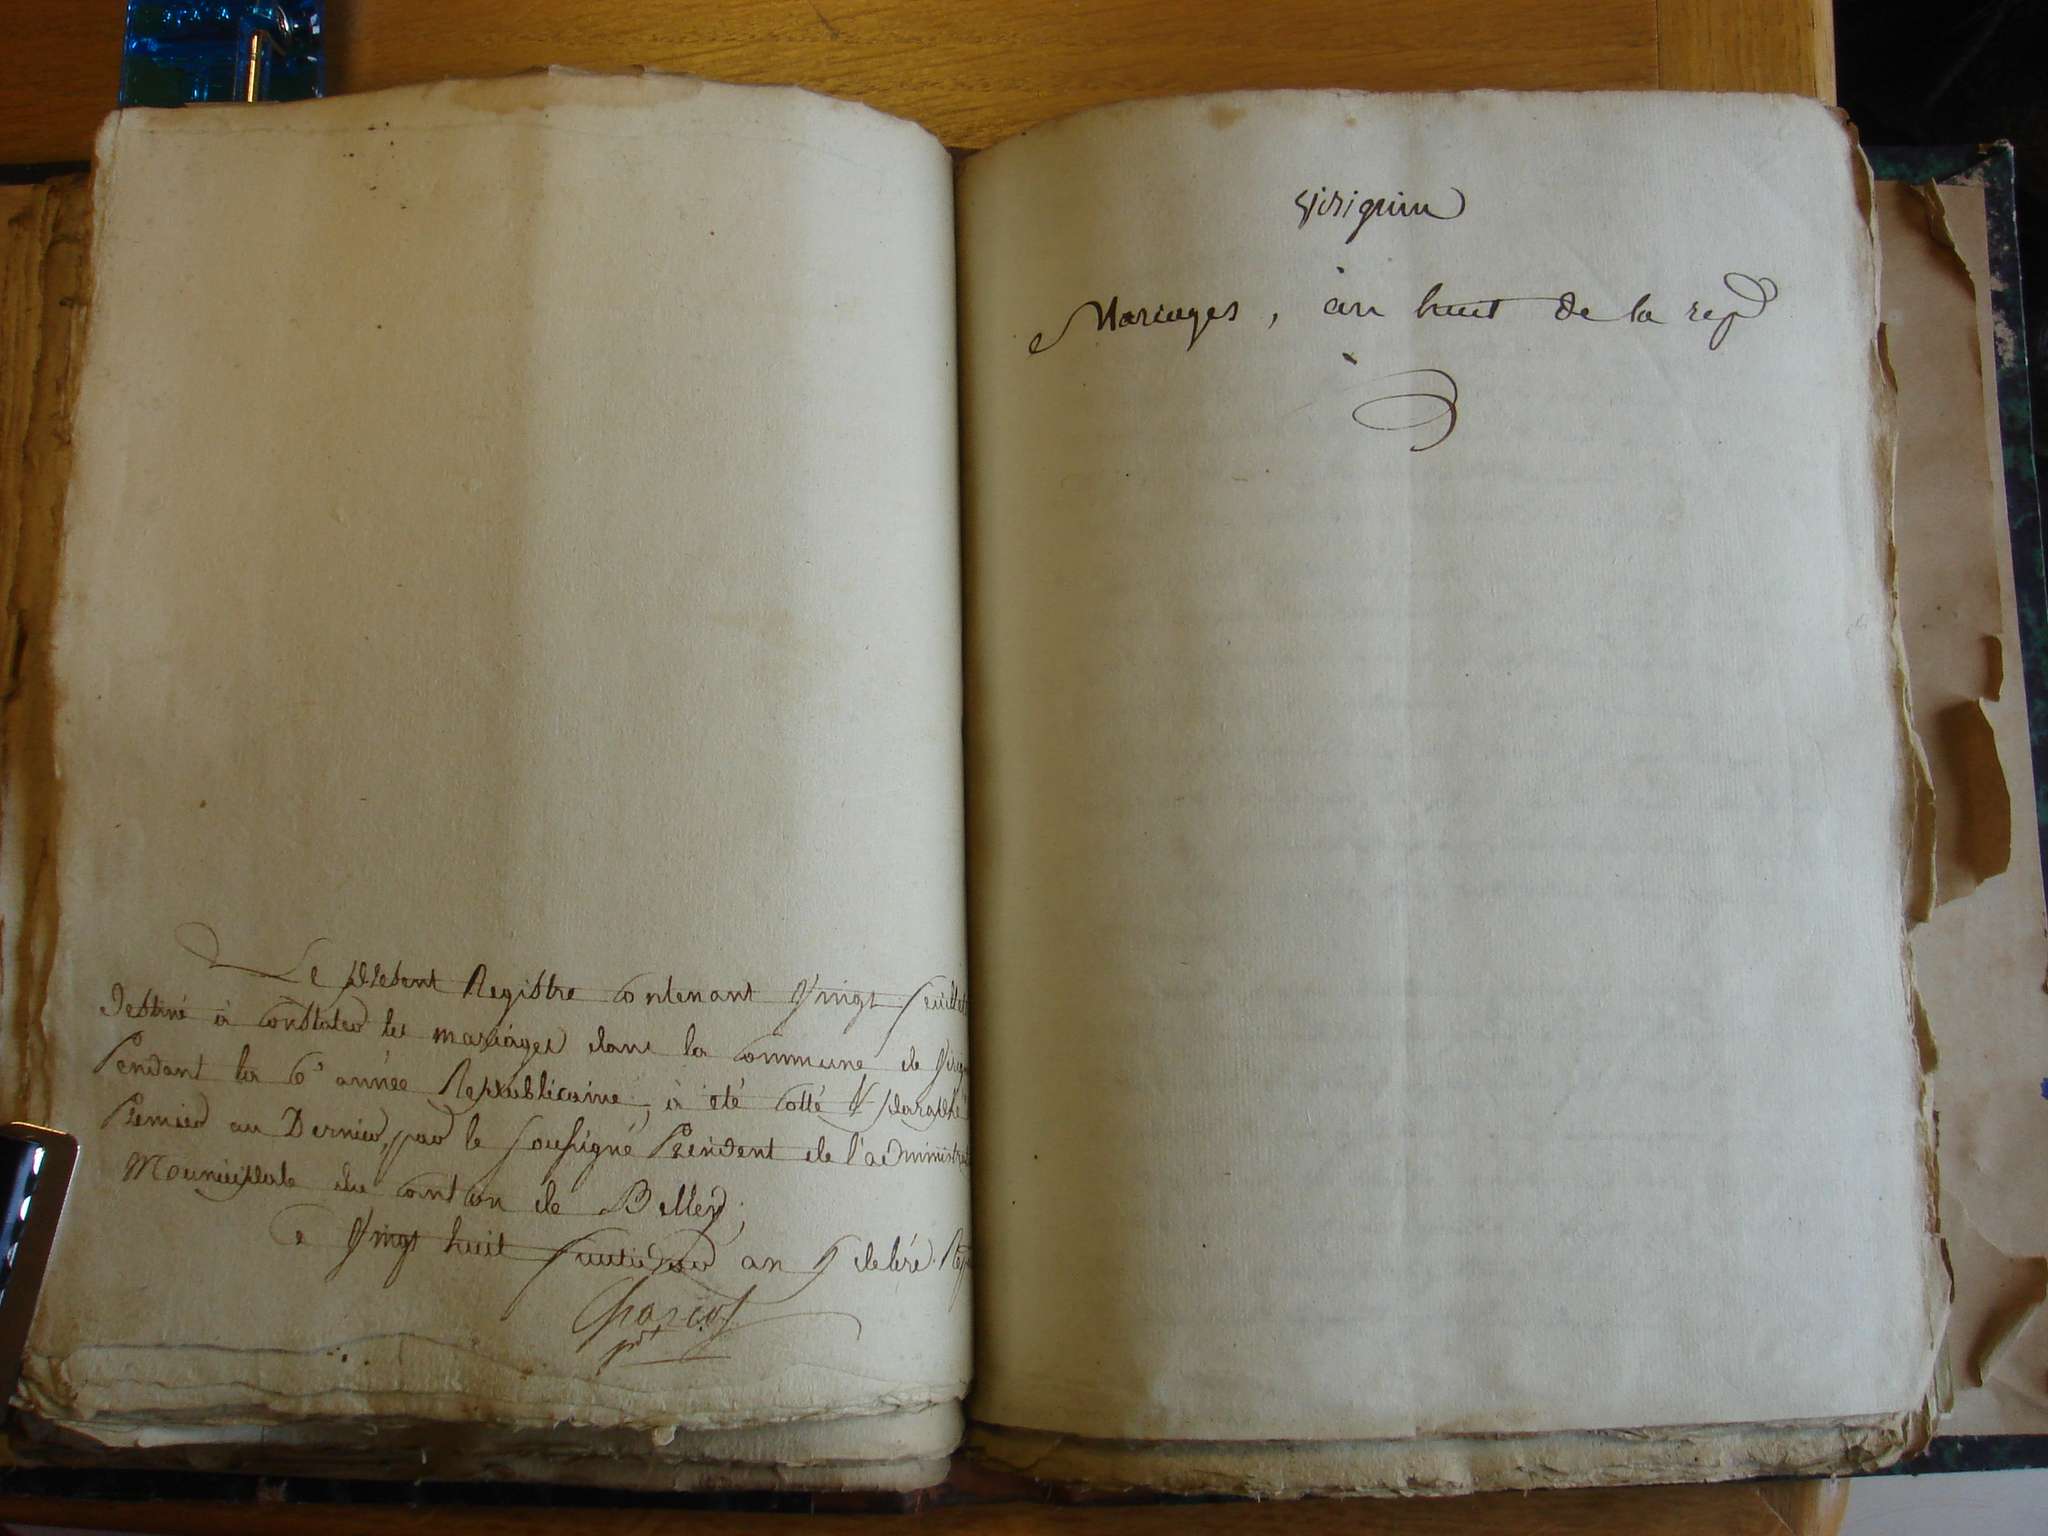 Le présent Registre Contenant Vingt feuillets
Destiné à Constater les mariages dans la Commune de Virign
Pendant la 6e année Republicaine, à été Cotté & Paraphé
Premier au Dernier, par le Soussigné President de l'administrat
Mounicipale du Canton de Belley,
Ce Vingt huit fructidor an 5 de l'ére Rep
Charcot
pdt
Virignin
Mariages, an huit de la rep